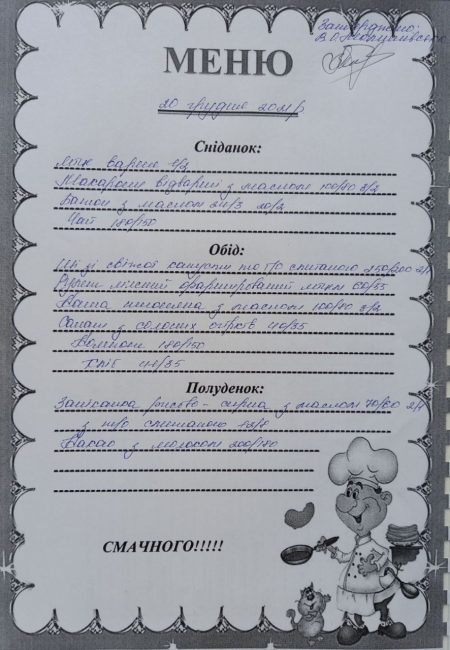 Затверджено:
МЕНЮ
20 грудня 2021р
Сніданок:
Яйце варене 1/2
Макарони відварні з маслом 100/80 3/2
Батон з маслом 24/3 20/2
Чай 180/150
Обід:
Щі зі свіжої капусти та т/о сметаною 250/200
Рулет мʼясний фарширований яйцем 60/35
Каша пшоняна з маслом 100/80 3/2
Салат з солоних огірків 40/35
180/150
хліб
Полуденок:
Запіканка рисово-сирна з маслом 70/60 2/1
з т/о сметаною
Какао з молоком 200/180
СМАЧНОГО!!!!!